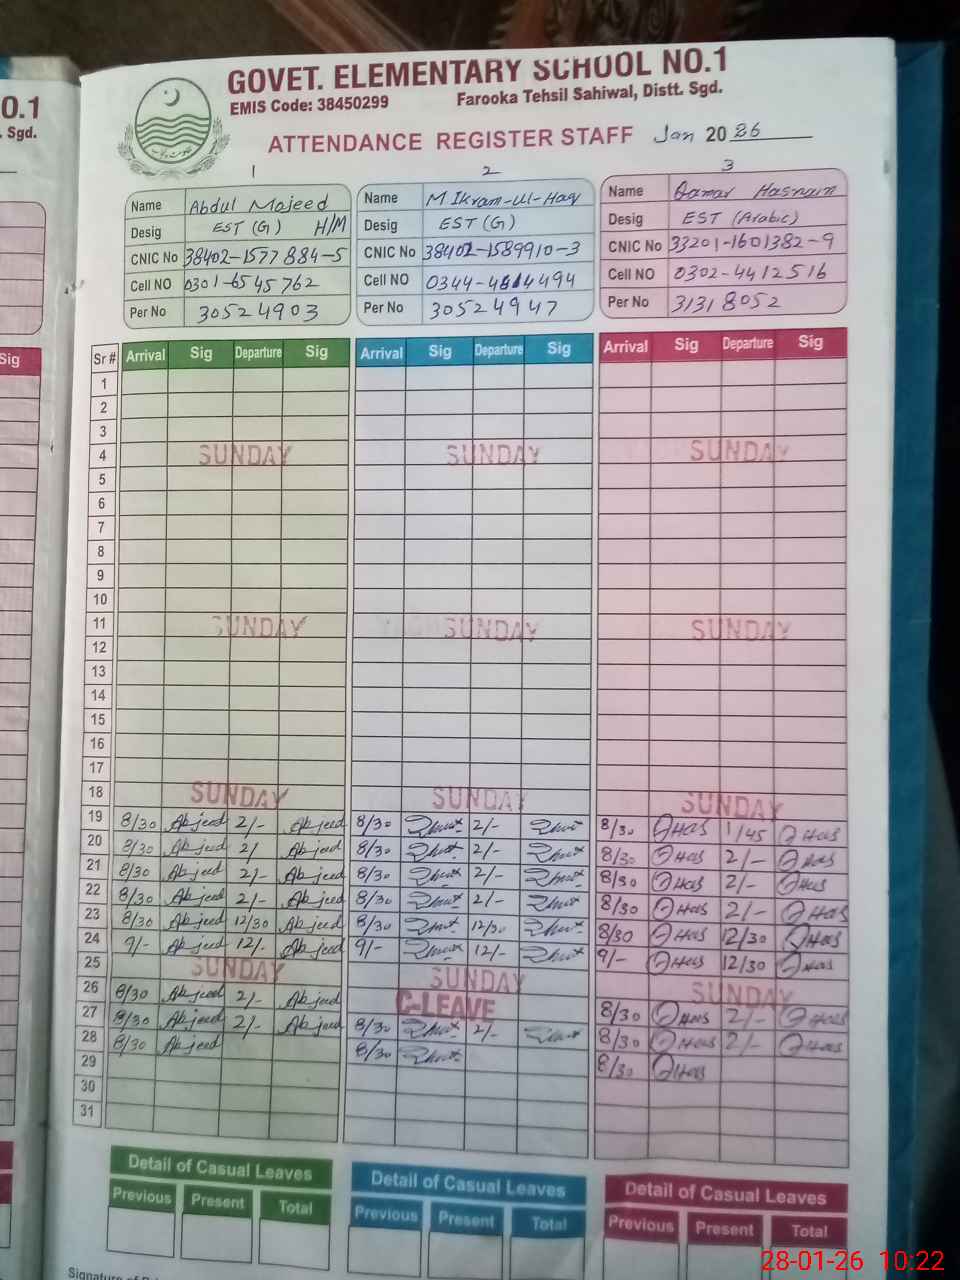 GOVET. ELEMENTARY SCHOOL NO.1
EMIS Code: 38450299 Farooka Tehsil Sahiwal, Distt. Sgd.
ATTENDANCE REGISTER STAFF Jan 2026
O.1
Sgd.
Sig
1 2 3
Name Abdul Majeed Name M Ikram-ul-Haq Name Qamar Hasnain
Desig EST (G) H/M Desig EST (G) Desig EST (Arabic)
CNIC No 38402-1577884-5 CNIC No 38402-1589910-3 CNIC No 33201-1601382-9
Cell NO 0301-6545762 Cell NO 0344-4614494 Cell NO 0302-4412516
Per No 30524903 Per No 30524947 Per No 31318052
Sr # Arrival Sig Departure Sig Arrival Sig Departure Sig Arrival Sig Departure Sig
1
2
3
4 SUNDAY SUNDAY SUNDAY
5
6
7
8
9
10
11 SUNDAY SUNDAY SUNDAY
12
13
14
15
16
17
18 SUNDAY SUNDAY SUNDAY
19 8/30 Abjeed 2/- Abjeed 8/30 2/- 8/30 QHas 1/45 QHas
20 8/30 Abjeed 2/ Abjeed 8/30 2/- 8/30 QHas 2/- QHas
21 8/30 Abjeed 2/- Abjeed 8/30 2/- 8/30 QHas 2/- QHas
22 8/30 Abjeed 2/- Abjeed 8/30 2/- 8/30 QHas 2/- QHas
23 8/30 Abjeed 12/30 Abjeed 8/30 12/30 8/30 QHas 12/30 QHas
24 9/- Abjeed 12/- Abjeed 9/- 12/- 9/- QHas 12/30 QHas
25 SUNDAY SUNDAY SUNDAY
26 8/30 Abjeed 2/- Abjeed C-LEAVE 8/30 QHas 2/- QHas
27 8/30 Abjeed 2/- Abjeed 8/30 2/- 8/30 QHas 2/- QHas
28 8/30 Abjeed 8/30 8/30 QHas
29
30
31
Detail of Casual Leaves Detail of Casual Leaves Detail of Casual Leaves
Previous Present Total Previous Present Total Previous Present Total
Signature of
28-01-26 10:22